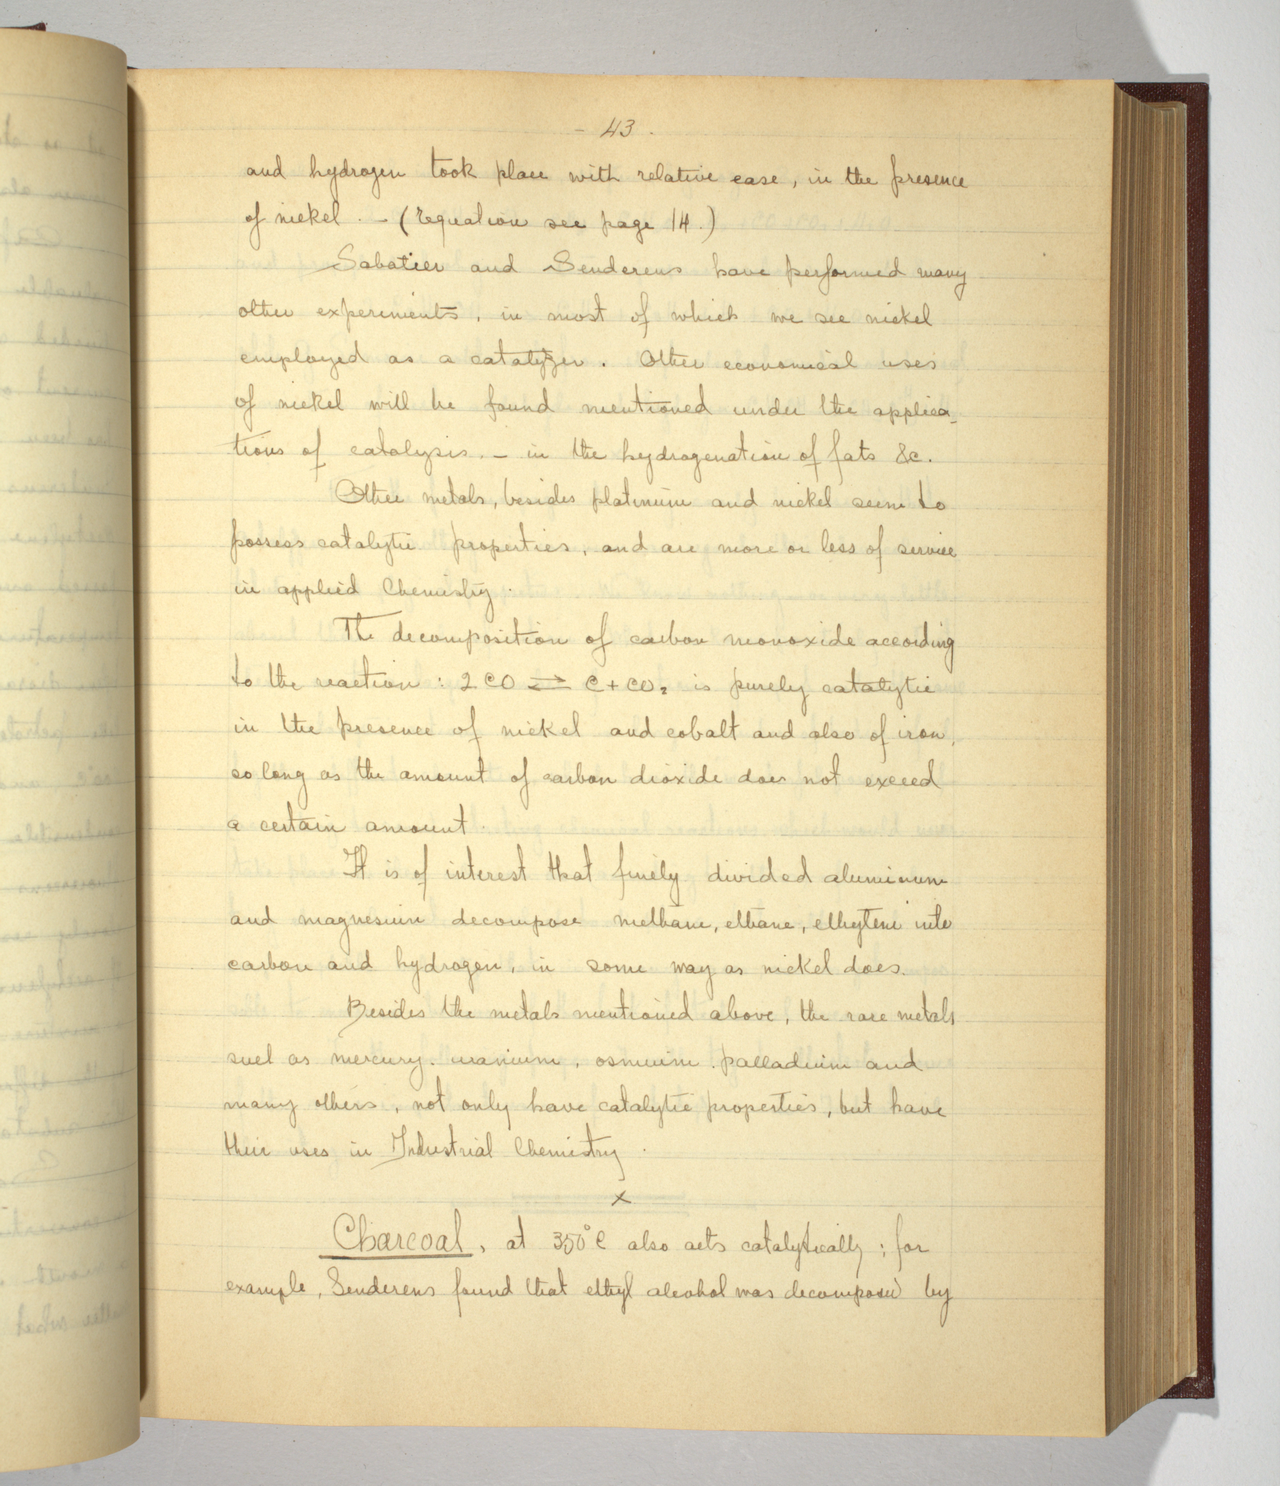 - 43 .
and hydrogen took place with relative ease, in the presence
of nickel. - (Equation see page 14.)
Sabatier and Senderens have performed many
other experiments, in most of which we see nickel
employed as a catalyzer. Other economical uses
of nickel will be found mentioned under the applica-
tions of catalysis. - in the hydrogenation of fats &c.
Other metals, besides platinum and nickel seem to
possess catalytic properties, and are more or less of service
in applied Chemistry.
The decomposition of carbon monoxide according
to the reaction : 2 CO ⇌ C + CO₂ is purely catalytic
in the presence of nickel and cobalt and also of iron,
so long as the amount of carbon dioxide does not exceed
a certain amount.
It is of interest that finely divided aluminum
and magnesium decompose methane, ethane, ethylene into
carbon and hydrogen, in some way as nickel does.
Besides the metals mentioned above, the rare metals
such as mercury. uranium, osmium. palladium and
many others, not only have catalytic properties, but have
their uses in Industrial Chemistry.
x
Charcoal, at 350°C also acts catalytically; for
example, Senderens found that ethyl alcohol was decomposed by